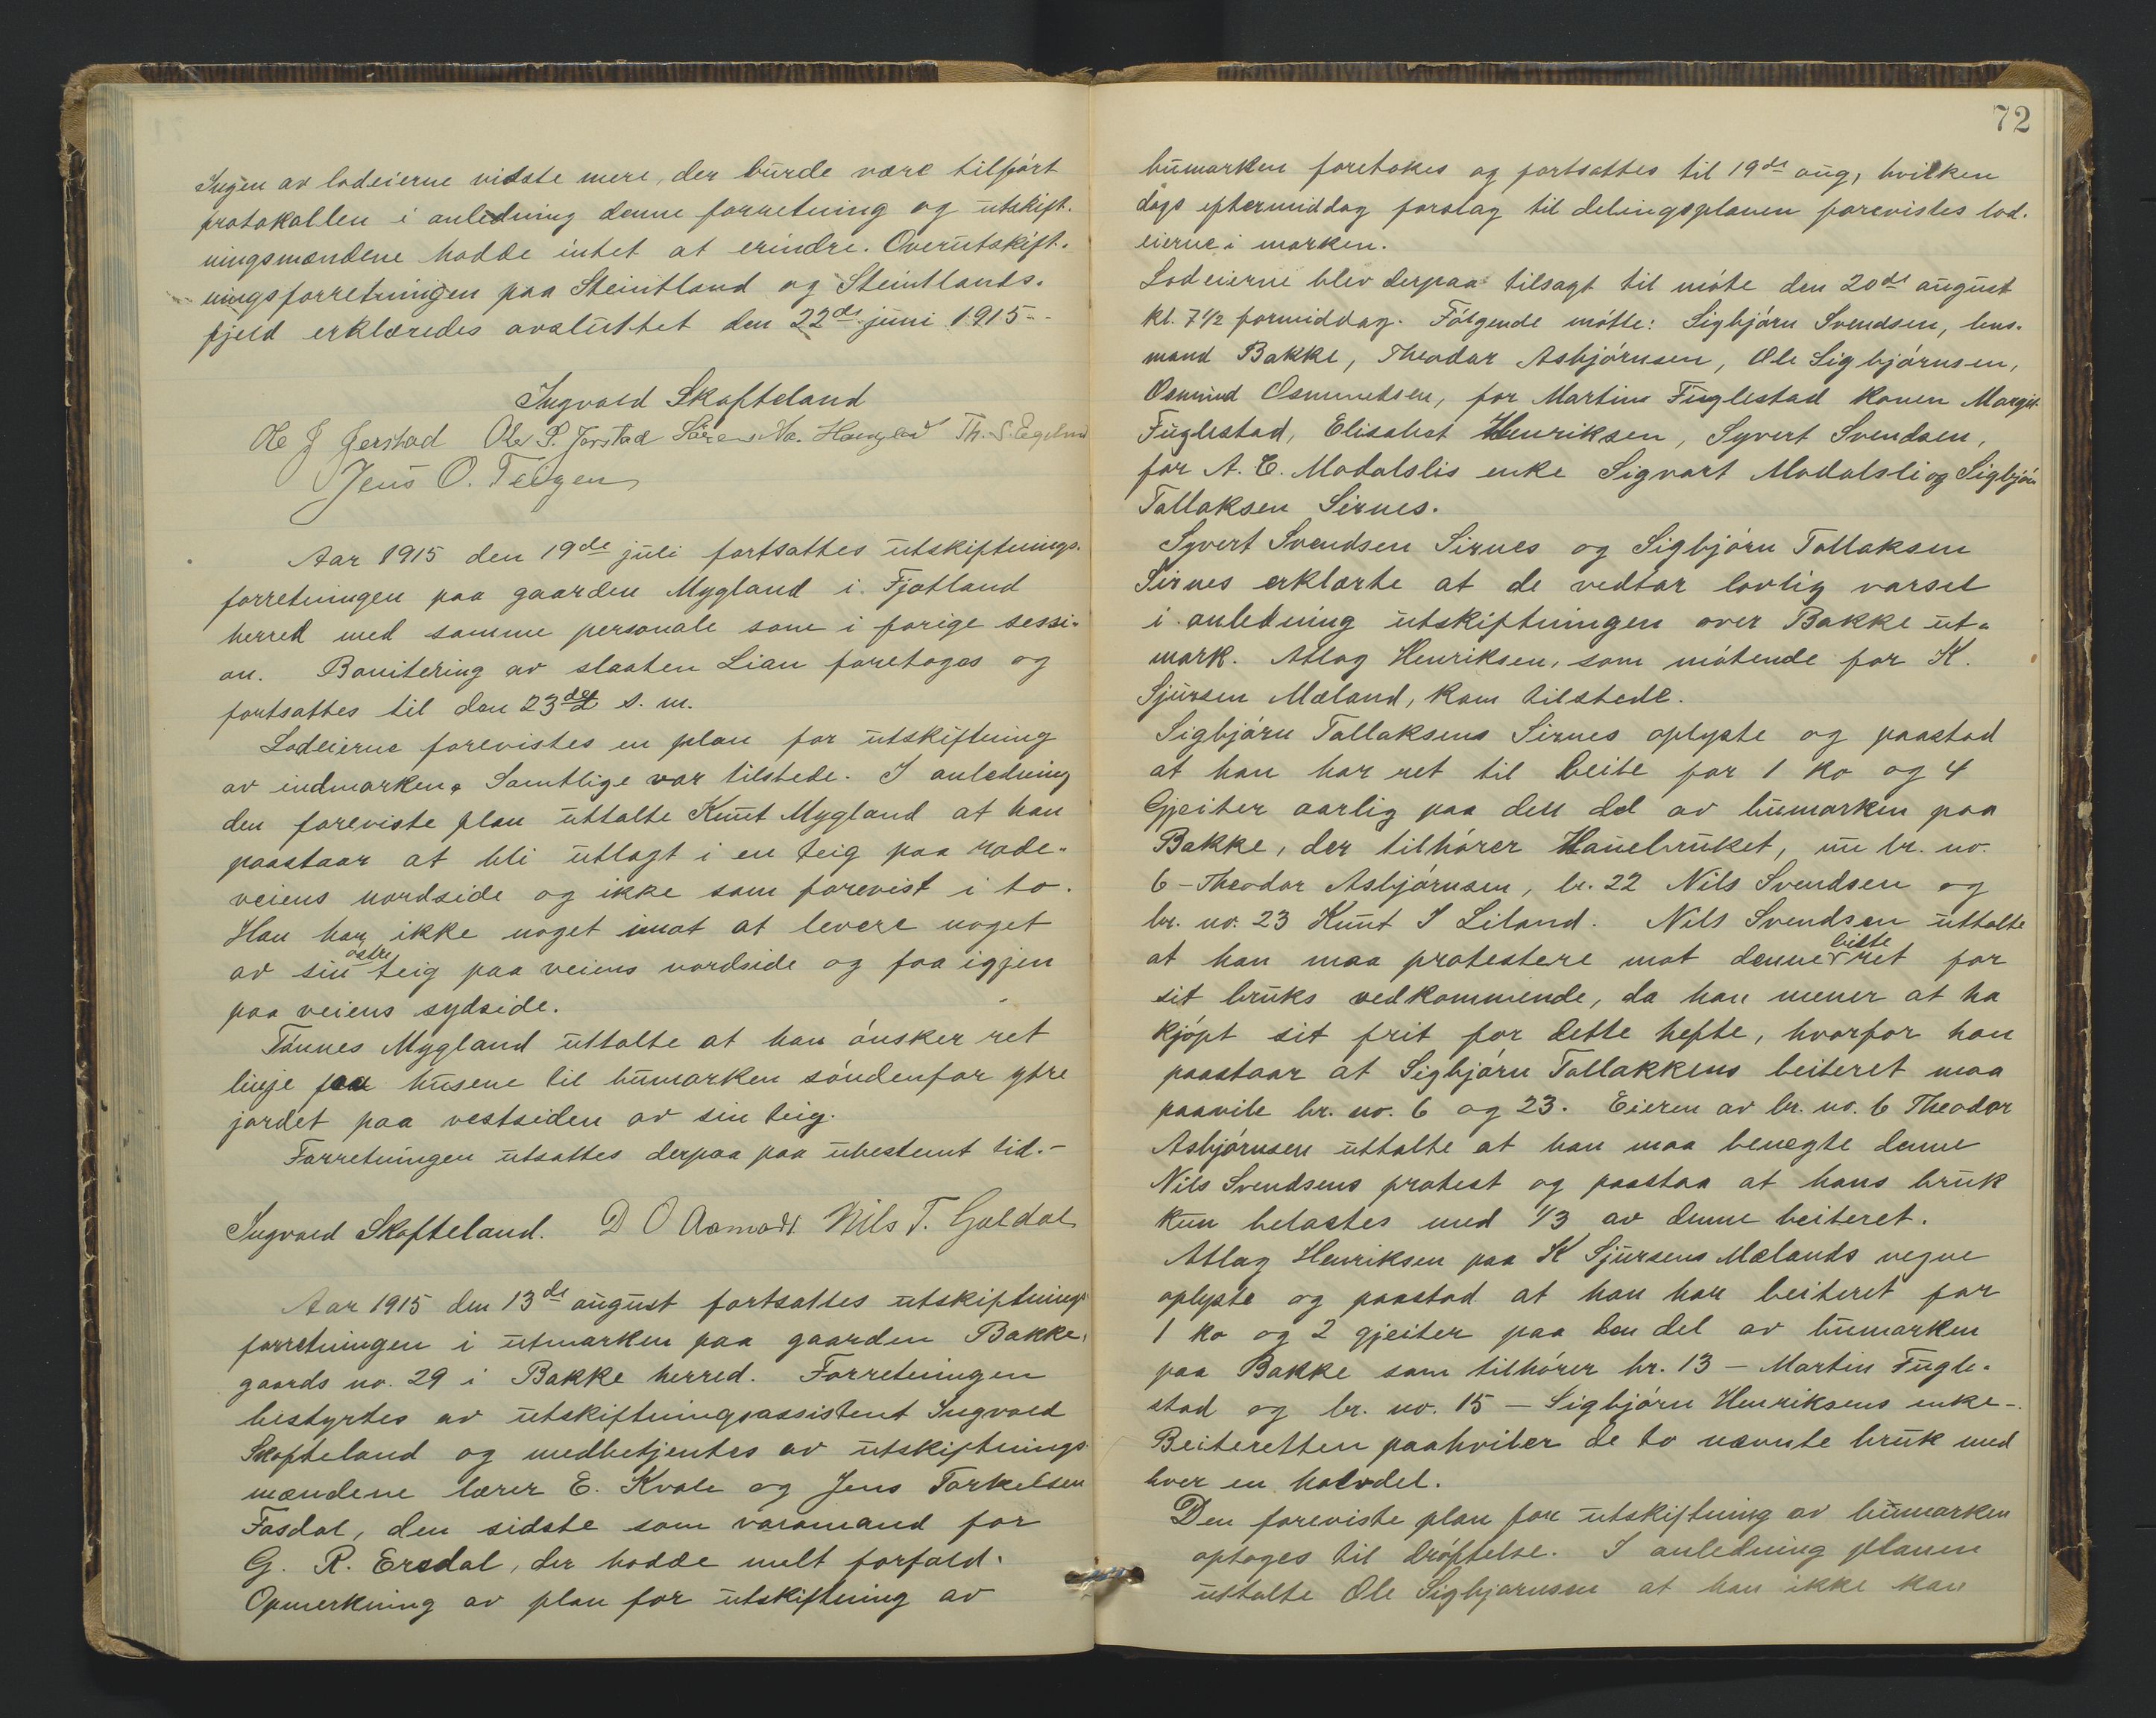 Ingen av lodeierne visste mere, der burde være tilført
protokollen i anledning denne forretning og utskift-
ningsmændene hadde intet at erindre. Overutskift-
ningsforretningen paa Steintland og Steintlands-
fjeld erklæredes avsluttet den 22de juni 1915.-
Ingvald Skofteland
Ole J Jerstad Ole S. Jerstad Sørens Na. Haugland Th. S. Egeland
Jens O. Teigen
Aar 1915 den 19de juli fortsattes utskiftnings-
forretningen paa gaarden Mygland i Fjotland
herred med samme personale som i forige sessi-
on. Bonitering av slaaten Lian foretoges og
fortsattes til den 23de s. m.
Lodeierne forevistes en plan for utskiftning
av indmarken. Samtlige var tilstede. I anledning
den foreviste plan uttalte Knut Mygland at han
paastaar at bli utlagt i en teig paa rode-
veiens nordside og ikke som forevist i to.
Han har ikke noget imot at levere noget
av sin østre teig paa veiens nordside og faa igjen
paa veiens sydside.
Tønnes Mygland uttalte at han ønsker ret
linje fra husene til bumarken søndenfor ytre
jordet paa vestsiden av sin teig.
Forretningen utsattes derpaa paa ubestemt tid.-
Ingvald Skofteland. D O Aamodt Nils T. Galdal
Aar 1915 den 13de august fortsattes utskiftnings-
forretningen i utmarken paa gaarden Bakke,
gaards no. 29 i Bakke herred. Forretningen
bestyrtes av utskiftningsassistent Ingvald
Skofteland og medbetjentes av utskiftnings-
mændene lærer E. Kvale og Jens Torkelsen
Fasdal, den sidste som varamand for
G. R. Eresdal, der hadde meldt forfald.
Opmerkning av plan for utskiftning av
72
bumarken foretokes og fortsattes til 19de aug, hvilken
dags eftermiddag forslag til delingsplanen forevistes lod-
eierne i marken.
Lodeierne blev derpaa tilsagt til møte den 20de august
kl. 7½ formiddag. Følgende møtte: Sigbjørn Svendsen, lens-
mand Bakke, Theodor Asbjørnsen, Ole Sigbjørnsen,
Osmund Osmundsen, for Martins Fuglestad konen Margit
Fuglestad, Elisabet Henriksen, Syvert Svendsen,
for A. E. Modalslis enke Sigvart Modalsli og Sigbjørn
Tallaksen Sirnes.
Syvert Svendsen Sirnes og Sigbjørn Tallaksen
Sirnes erklærte at de vedtar lovlig varsel
i anledning utskiftningen over Bakke ut-
mark. Atlag Henriksen, som møtende for K.
Sjursen Mæland, kom tilstede.
Sigbjørn Tallaksens Sirnes oplyste og paastod
at han har ret til beite for 1 ko og 4
gjeiter aarlig paa den del av bumarken paa
Bakke, der tilhører Hauebruket, nu br. no.
6 - Theodor Asbjørnsen, br. 22 Nils Svendsen og
br. no. 23 Knut I Liland. Nils Svendsen uttalte
at han maa protestere mot denne beiteret for
sit bruks vedkommende, da han mener at ha
kjøpt sit frit for dette hefte, hvorfor han
paastaar at Sigbjørn Tallakkens beiteret maa
paavile br. no. 6 og 23. Eieren av br. no. 6 Theodor
Asbjørnsen uttalte at han maa benegte denne
Nils Svendsens protest og paastaa at hans bruk
kun belastes med 1/3 av denne beiteret.
Atlag Henriksen paa K Sjursens Mælands vegne
oplyste og paastod at han har beiteret for
1 ko og 2 gjeiter paa den del av bumarken
paa Bakke som tilhører br. 13 - Martin Fugle-
stad og br. no. 15 - Sigbjørn Henriksens enke -.
Beiteretten paahviler de to nævnte bruk med
hver en halvdel.
Den foreviste plan for utskiftning av bumarken
optoges til drøftelse. I anledning planen
uttalte Ole Sigbjørnsen at han ikke kan